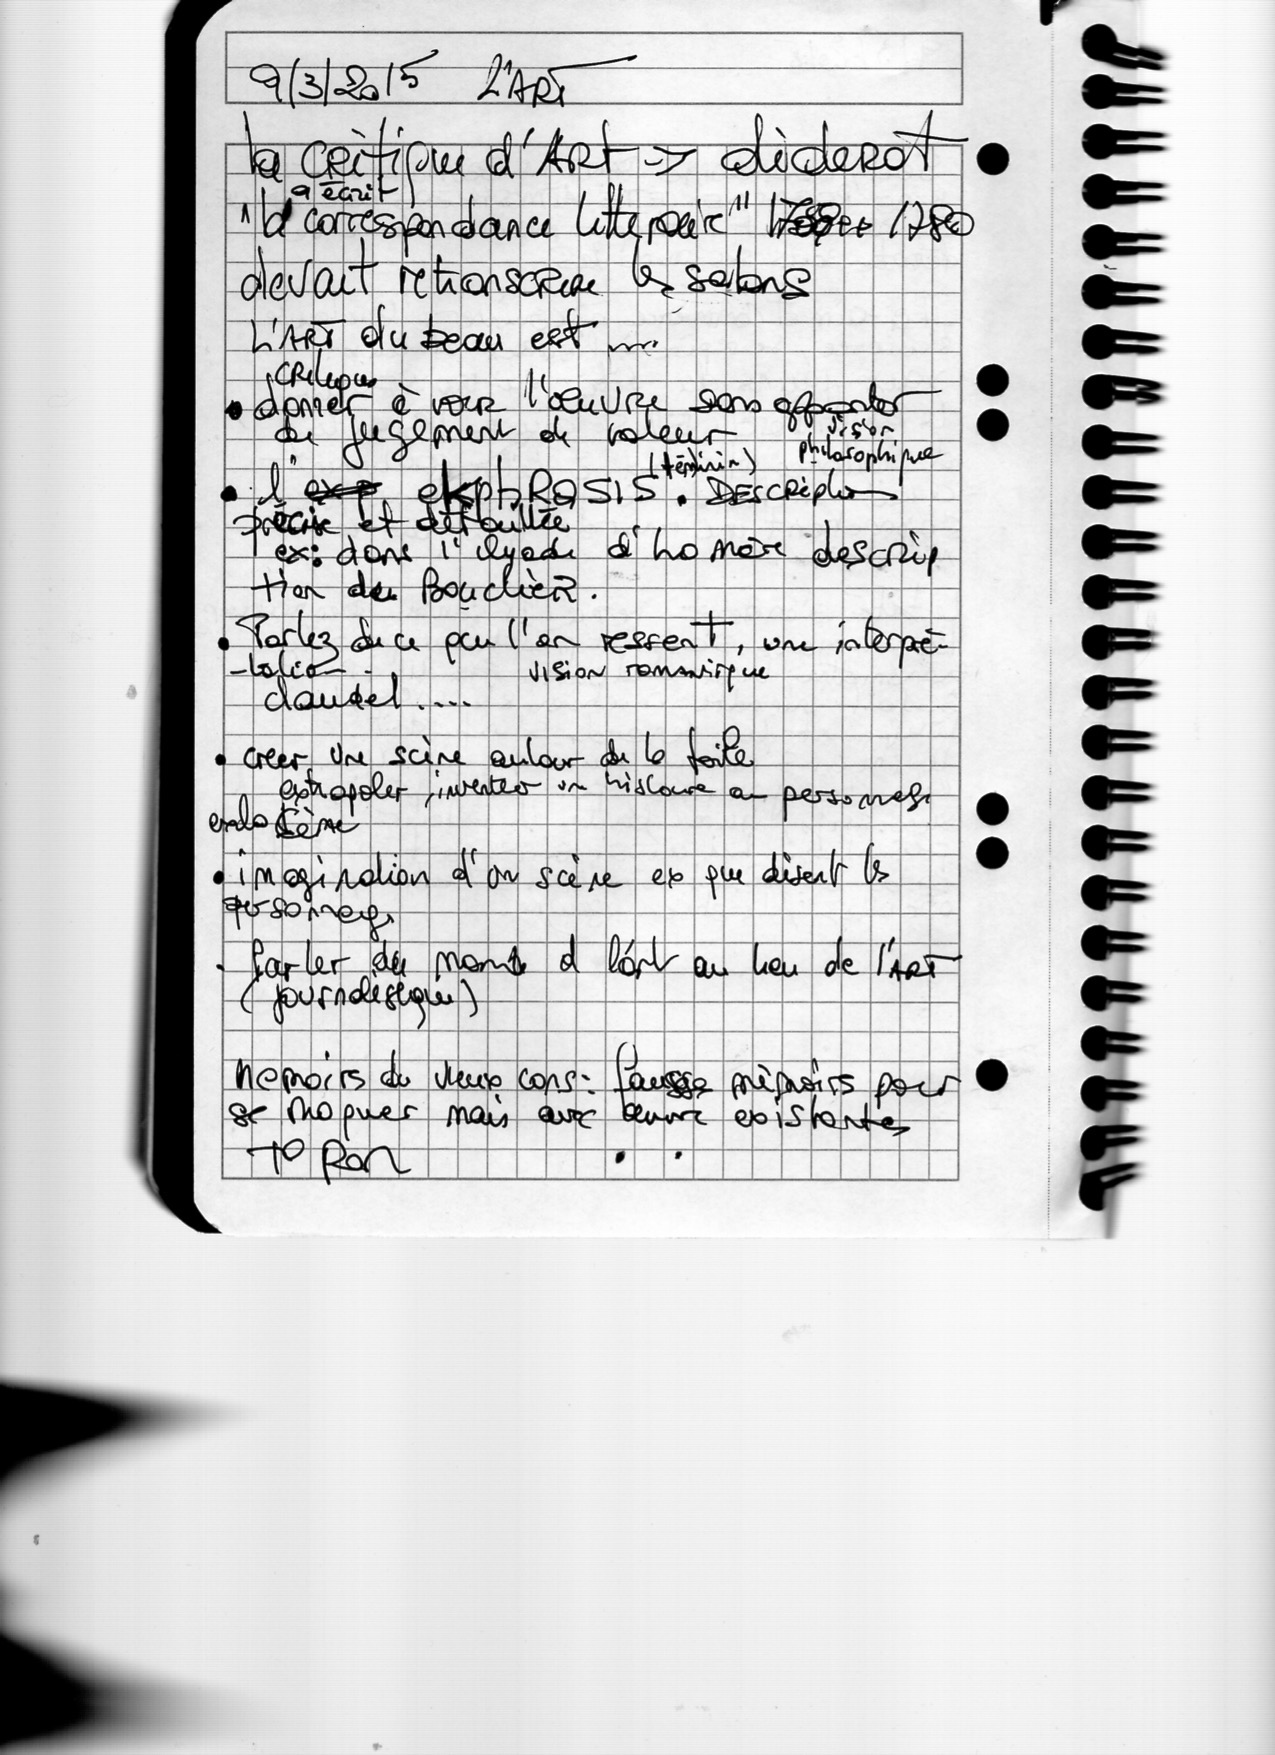 9/3/2015 L'ART
la critique d'ART -> diderot
a écrit
"la correspondance litteraire" 1780
devait retranscrire les salons
L'ART du beau est ....
critique
• donner à voir l'oeuvre sans apporter
de jugement de valeur vision
philosophique
(féminin)
• l' ekphRASIS. DEscription
précise et détaillée
ex: dans l'ilyade d'homère descrip
tion du Bouclier.
• Parlez de ce que l'on ressent, une interpré-
-tation vision romantique
claudel ....
• créer une scène autour de la toile
extrapoler, inventer un histoire au personnage
• imagination d'un scène ex que disent les
personnages
. Parler du monde d l'art au lieu de l'ART
(journalistique)
Memoirs du vieux cons: fausse mémoirs pour
se moquer mais avec oeuvre existantes